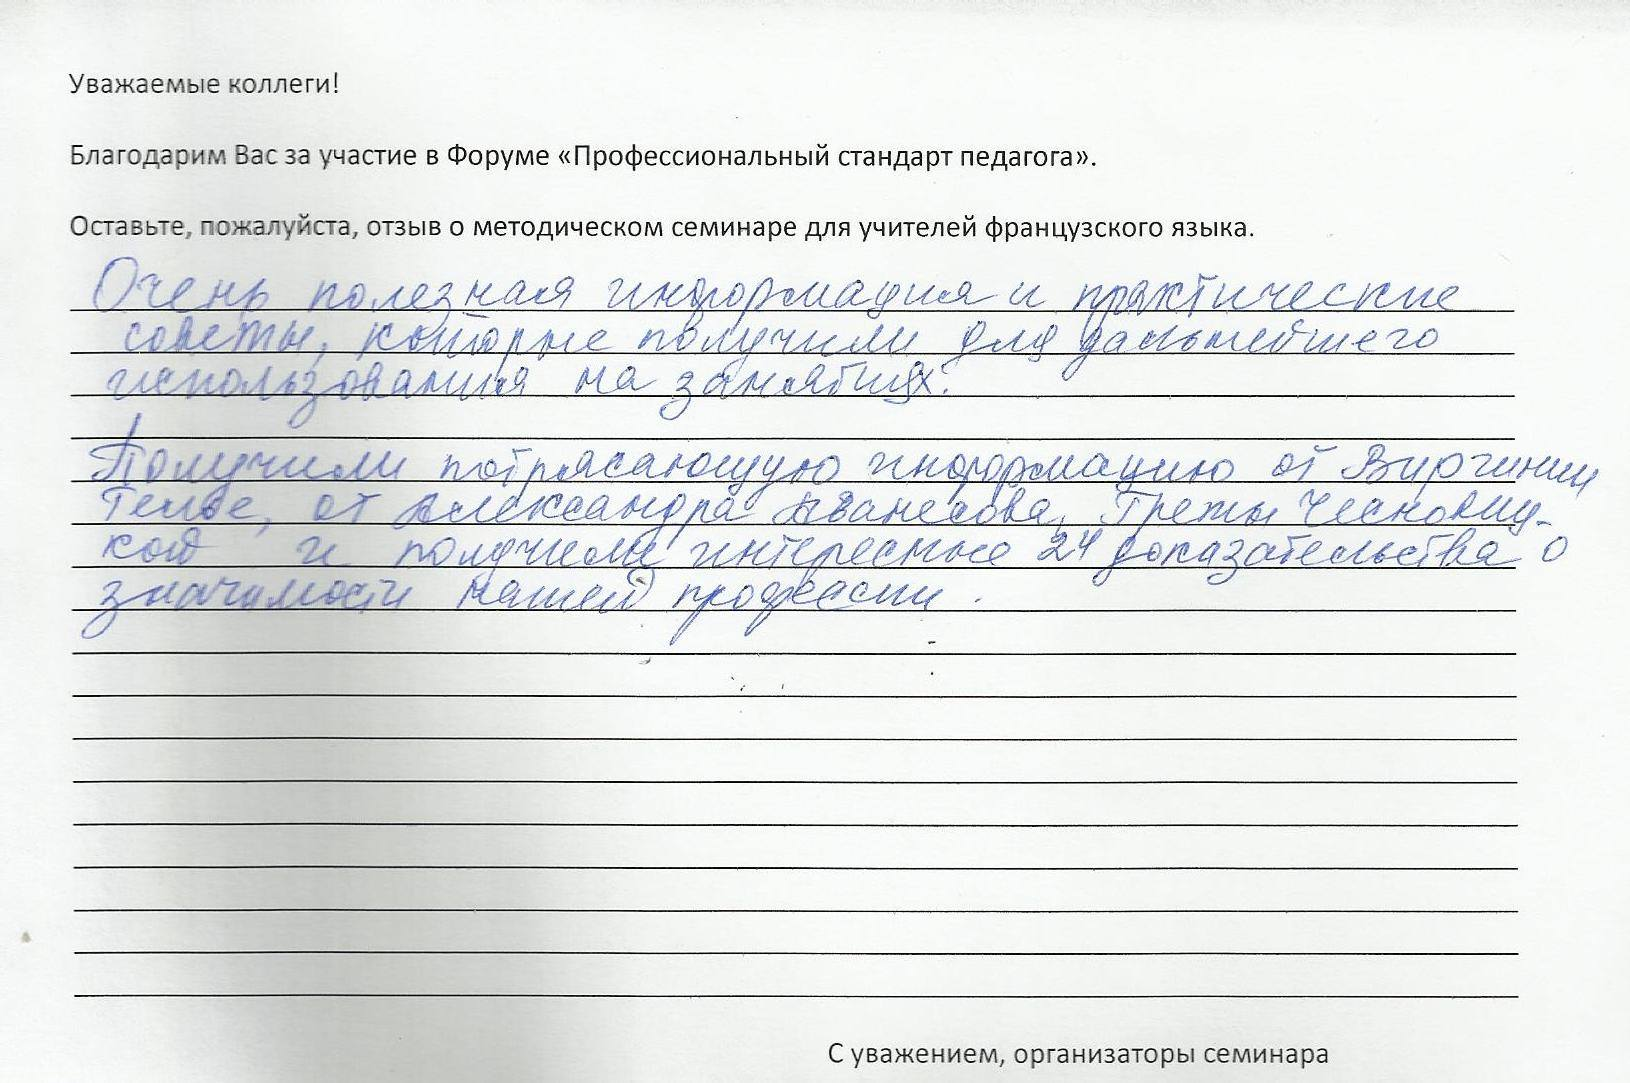 Уважаемые коллеги!
Благодарим Вас за участие в Форуме «Профессиональный стандарт педагога».
Оставьте, пожалуйста, отзыв о методическом семинаре для учителей французского языка.
Очень полезная информация и практические
советы, которые получили для дальнейшего
использования на занятиях.
Получили потрясающую информацию от Виргинии
от Александра Аванесова, Греты
кой и получили интересные 24 доказательства о
значимости нашей профессии.
С уважением, организаторы семинара